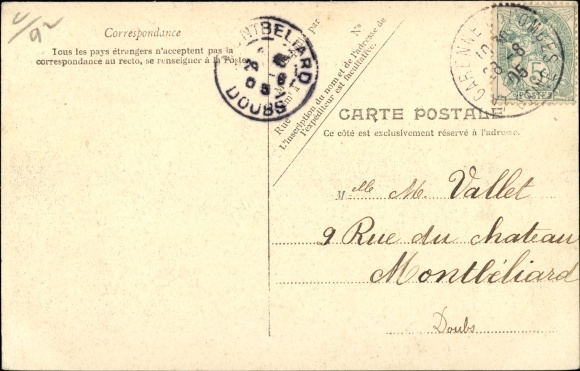 4/92
Correspondance
Tous les pays étrangers n'acceptent pas la
correspondance au recto, se renseigner à la Poste
MONTBELIARD
DOUBS
par
Rue
N°
L'inscription du nom et de l'adresse de
l'expéditeur est facultative.
LA GARENNE COLOMBES
5
POSTES
CARTE POSTALE
Ce côté est exclusivement réservé à l'adresse.
Melle M. Vallet
9 Rue du chateau
Montbéliard
Doubs